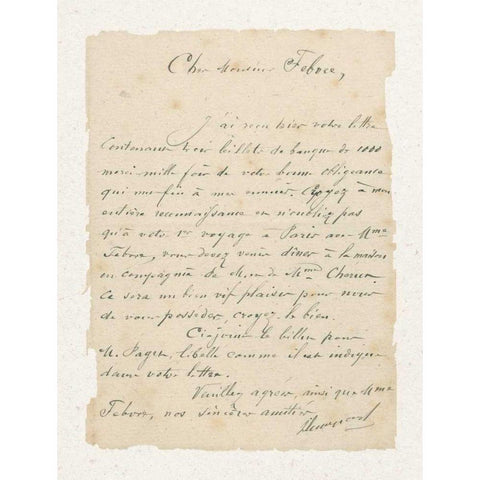 Cher Monsieur Febvre,
J'ai reçu hier votre lettre
Contenant trois billets de banque de 1000
merci mille fois de votre bonne obligeance
qui met fin à mes ennuis. Croyez à mon
entière reconnaissance et n'oubliez pas
qu'à votre 1er voyage à Paris avec Mme
Febvre, vous devez venir dîner à la maison
en compagnie de M. et de Mme
ce sera un bien vif plaisir pour nous
de vous posseder, croyez-le bien.
Ci-joint le billet pour
M. libellé comme il est indiqué
dans votre lettre.
Veuillez agréer, ainsi que Mme
Febvre, nos sincères amitiés